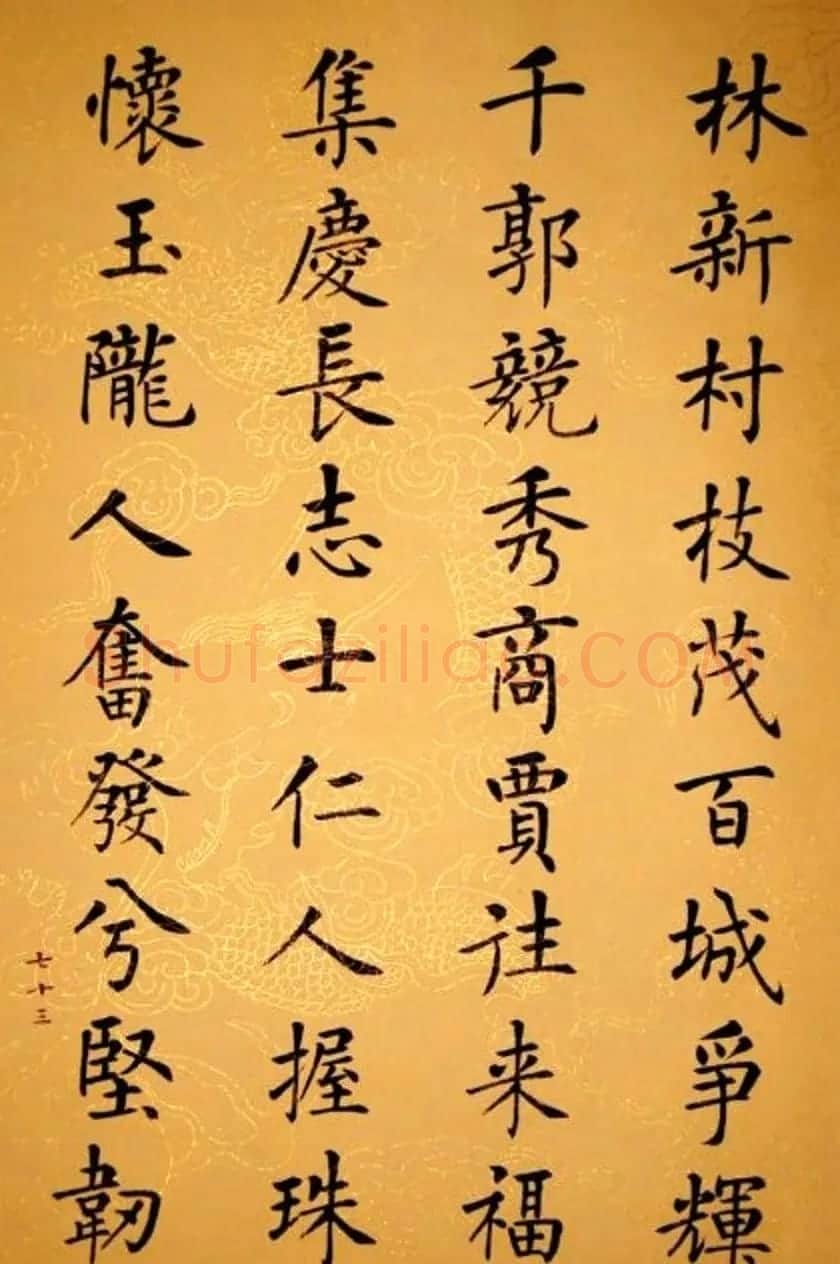 林新村枝茂百城爭輝
千郭競秀商賈往来福
集慶長志士仁人握珠
懷玉隴人奮發兮堅韌
七十三
shufaziliao.com